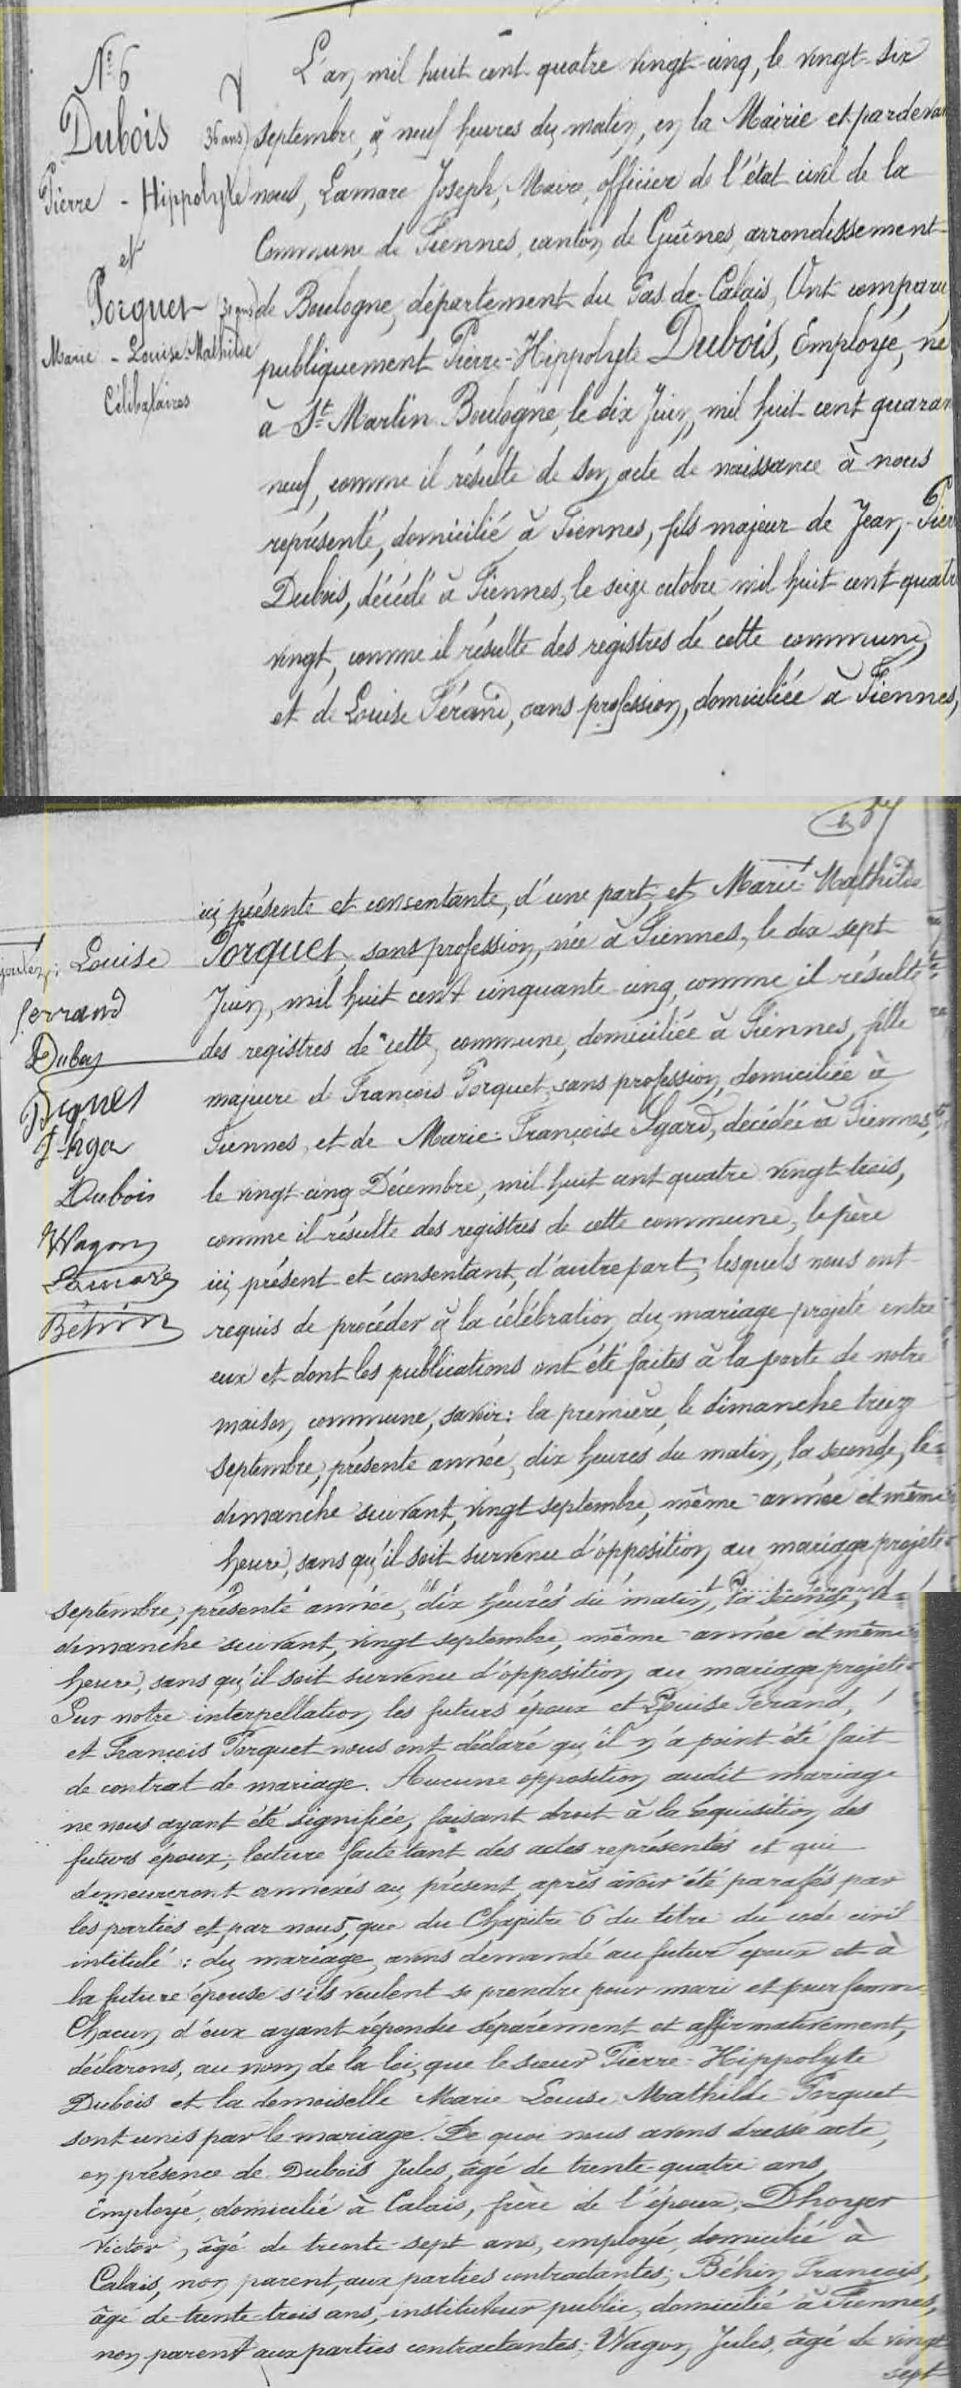 N° 6
Dubois 36 ans
Pierre - Hippolyte
et
Porquet (30 ans)
Marie - Louise-Mathilde
Célibataires
L'an mil huit cent quatre vingt-cinq, le vingt-six
septembre, à neuf heures du matin, en la Mairie et pardevan
nous, Lamare Joseph, Maire, officier de l'état civil de la
Commune de Fiennes, canton de Guînes, arrondissement
de Boulogne, département du Pas-de-Calais, Ont comparu
publiquement Pierre-Hippolyte Dubois, Employé, né
à St Martin Boulogne, le dix Juin, mil huit cent quaran
neuf, comme il résulte de son acte de naissance à nous
représenté, domicilié à Fiennes, fils majeur de Jean-Pier
Dubois, décédé à Fiennes, le seize octobre mil huit cent quatre
vingt, comme il résulte des registres de cette commune,
et de Louise Férand, sans profession, domiciliée à Fiennes,
ici présente et consentante, d'une part, et Marie-Mathilde
Porquet, sans profession, née à Fiennes, le dix sept
Juin, mil huit cent cinquante-cinq, comme il résulte
des registres de cette commune, domiciliée à Fiennes, fille
majeure de François Porquet, sans profession, domiciliée à
Fiennes, et de Marie-Françoise Sgard, décédée à Fiennes,
le vingt-cinq Décembre, mil huit cent quatre vingt-trois,
comme il résulte des registres de cette commune, le père
ici présent et consentant, d'autre part; lesquels nous ont
requis de procéder à la célébration du mariage projeté entre
eux et dont les publications ont été faites à la porte de notre
maison commune, savoir: la première, le dimanche treize
septembre, présente année, dix heures du matin, la seconde, le
dimanche suivant, vingt septembre, même année et même
heure, sans qu'il soit survenu d'opposition au mariage projeté
Louise
ferrand
Dubois
Dubois
Wagon
Lamare
Béhin
septembre, présente année, dix heures du matin, la seconde, le
dimanche suivant, vingt septembre, même année et même
heure, sans qu'il soit survenu d'opposition au mariage projeté
Sur notre interpellation, les futurs époux et Louise Ferand,
et François Porquet nous ont déclaré qu'il n'a point été fait
de contrat de mariage. Aucune opposition audit mariage
ne nous ayant été signifiée, faisant droit à la réquisition des
futurs époux; lecture faite tant des actes représentés et qui
demeureront annexés au présent après avoir été parafés par
les parties et par nous, que du Chapitre 6 du titre du code civil
intitulé: du mariage, avons demandé au futur époux et à
la future épouse s'ils veulent se prendre pour mari et pour femme
Chacun d'eux ayant répondu séparément et affirmativement,
déclarons, au nom de la loi, que le sieur Pierre-Hippolyte
Dubois et la demoiselle Marie Louise Mathilde Porquet
sont unis par le mariage. De quoi nous avons dressé acte,
en présence de Dubois Jules, âgé de trente-quatre ans,
Employé, domicilié à Calais, frère de l'époux; Dhoyer
Victor, âgé de trente-sept ans, employé, domicilié à
Calais, non parent, aux parties contractantes; Béhin François,
âgé de trente-trois ans, instituteur public, domicilié à Fiennes,
non parent aux parties contractantes; Wagon Jules, âgé de vingt
sept